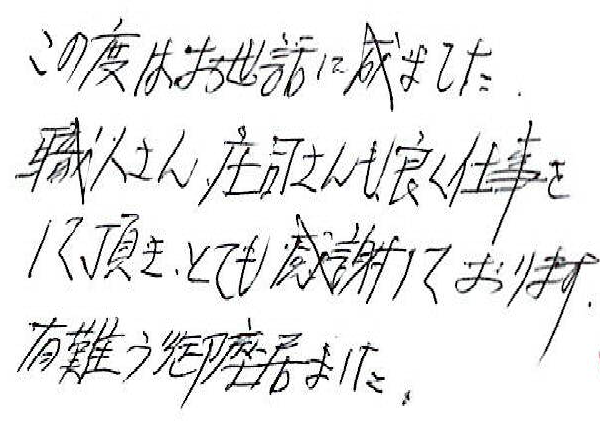 この度はお世話に成ました.
職人さん、庄司さんも良く仕事を
して頂き、とても感謝しております.
有難う御座居ました.